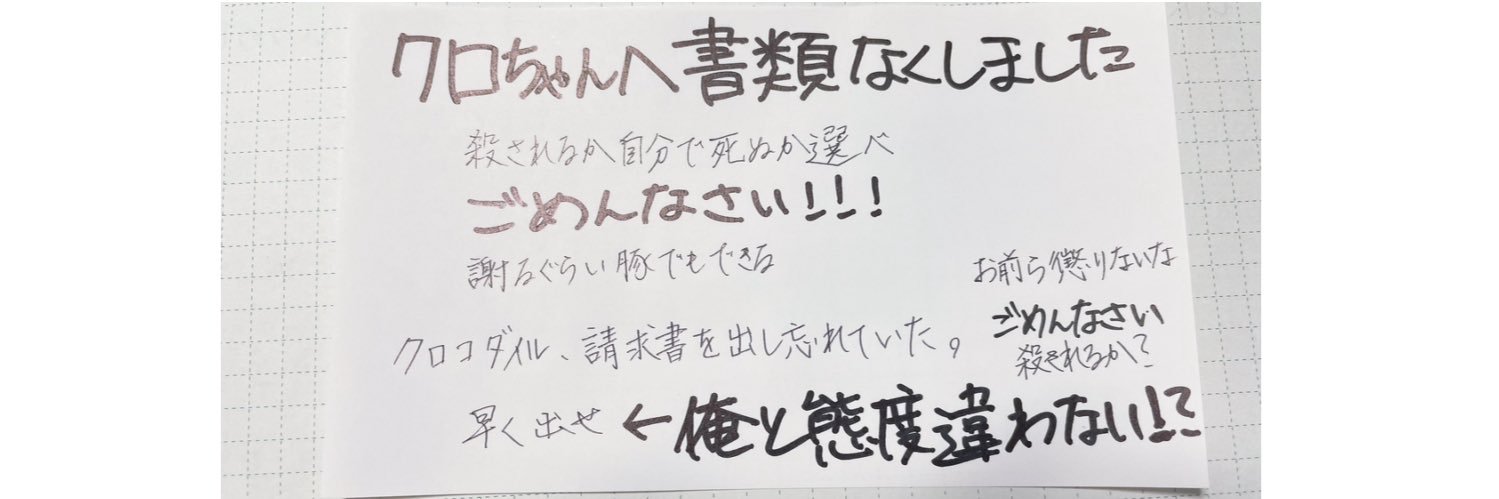 クロちゃんへ書類なくしました
殺されるか自分で死ぬか選べ
ごめんなさい!!!
謝るぐらい豚でもできる
お前ら懲りないな
ごめんなさい
殺されるか?
クロコダイル、請求書を出し忘れていた。
早く出せ ←俺と態度違わない!?